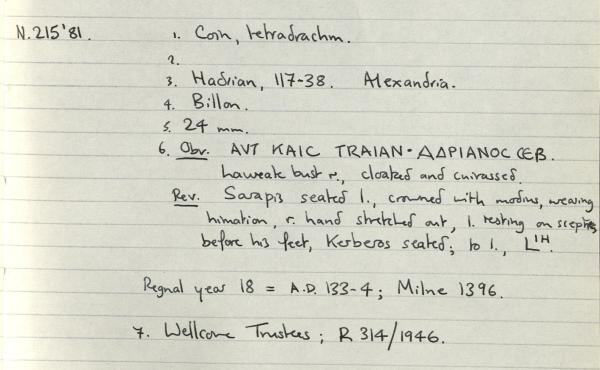 N.215'81. 1. Coin, tetradrachm.
2.
3. Hadrian, 117-38. Alexandria.
4. Billon.
5. 24 mm.
6. Obv. ΑVΤ ΚΑΙC ΤRΑΙΑΝ·ΑΔΡΙΑΝΟC CΕΒ.
Laureate bust r., cloaked and cuirassed.
Rev. Sarapis seated l., crowned with modius, wearing
himation, r. hand stretched out, l. resting on sceptre,
before his feet, Kerberos seated; to l., L ΙΗ.
Regnal year 18 = A.D. 133-4; Milne 1396.
7. Wellcome Trustees; R 314/1946.